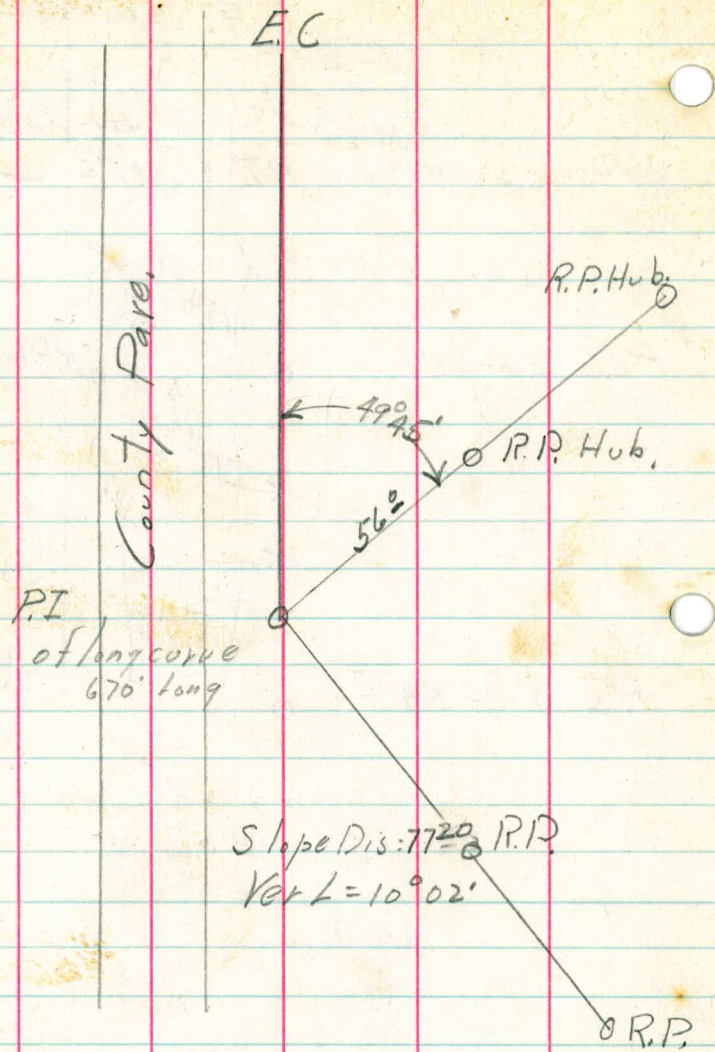 E.C
R.P. Hub.
County Pave.
49° 45'
R.P. Hub.
56º
P.I
of long curve
670' Long
Slope Dis: 77²⁰ R.P.
Ver L = 10° 02'
R.P.